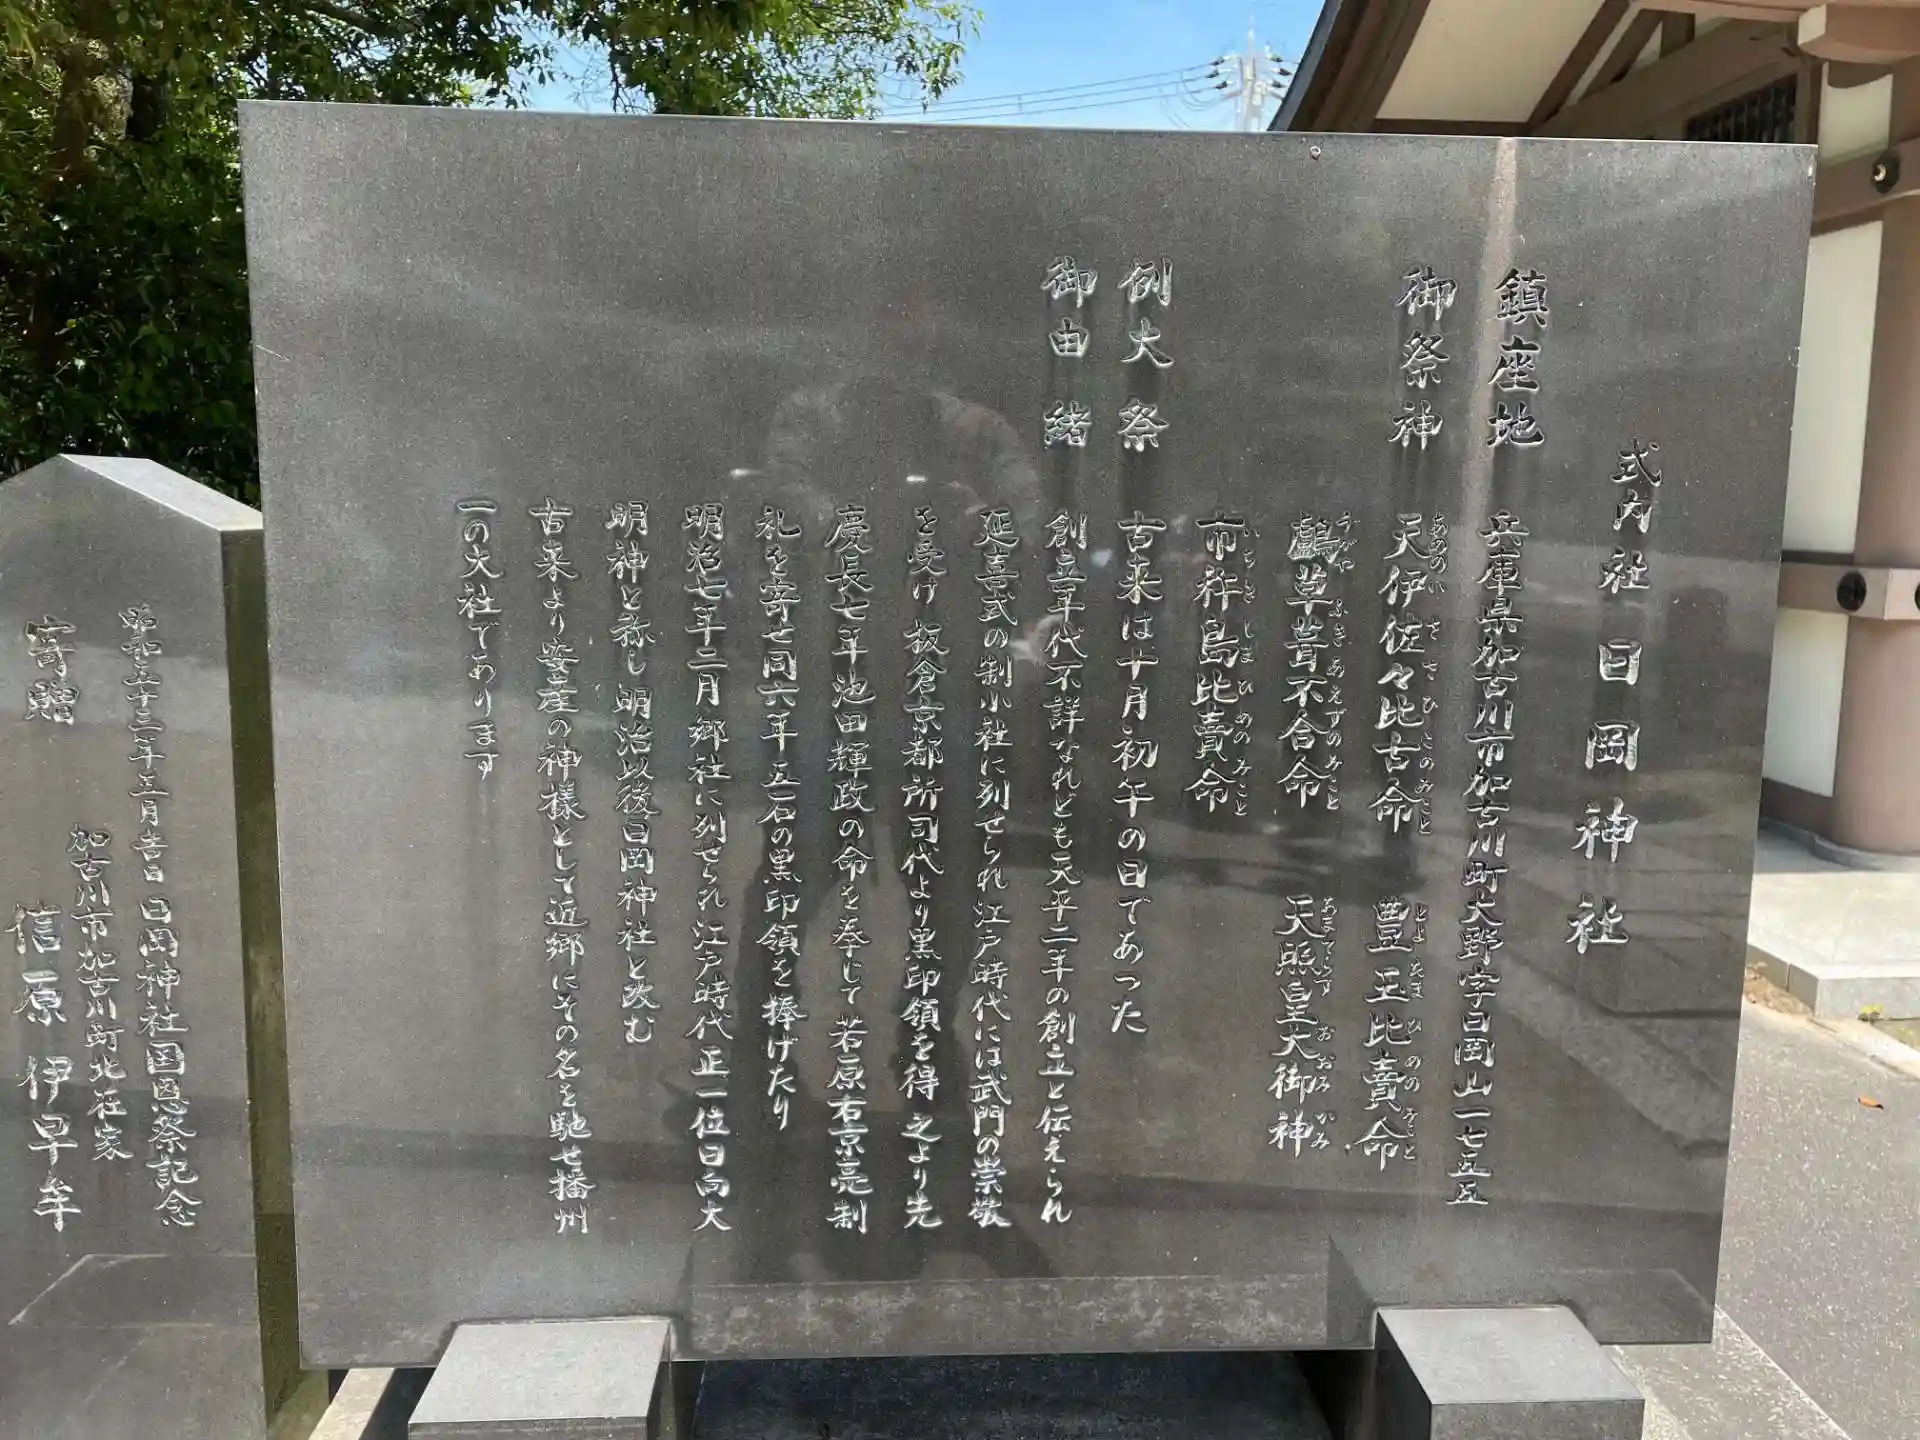 式内社 日岡神社
鎮座地 兵庫県加古川市加古川町大野字日岡山一七五五
御祭神 天伊佐々比古命 豊玉比賣命
あめのいささひこのみこと とよたまひめのみこと
鸕草葺不合命 天照皇大御神
うがやふきあえずのみこと あまてらすおおみかみ
市杵島比賣命
いちきしまひめのみこと
例大祭 古来は十月初午の日であった
御由緒 創立年代不詳なれども天平二年の創立と伝えられ
延喜式の制小社に列せられ江戸時代には武門の崇敬
を受け 板倉京都所司代より黒印領を得 之より先
慶長七年池田輝政の命を奉じて若原右京亮制
礼を寄せ同六年五石の黒印領を捧げたり
明治七年二月郷社に列せられ江戸時代正一位日向大
明神と称し明治以後日岡神社と改む
古来より安産の神様として近郷にその名を馳せ播州
一の大社であります
昭和五十三年五月吉日 日岡神社国恩祭記念
加古川市加古川町北在家
寄贈 信原伊早牟